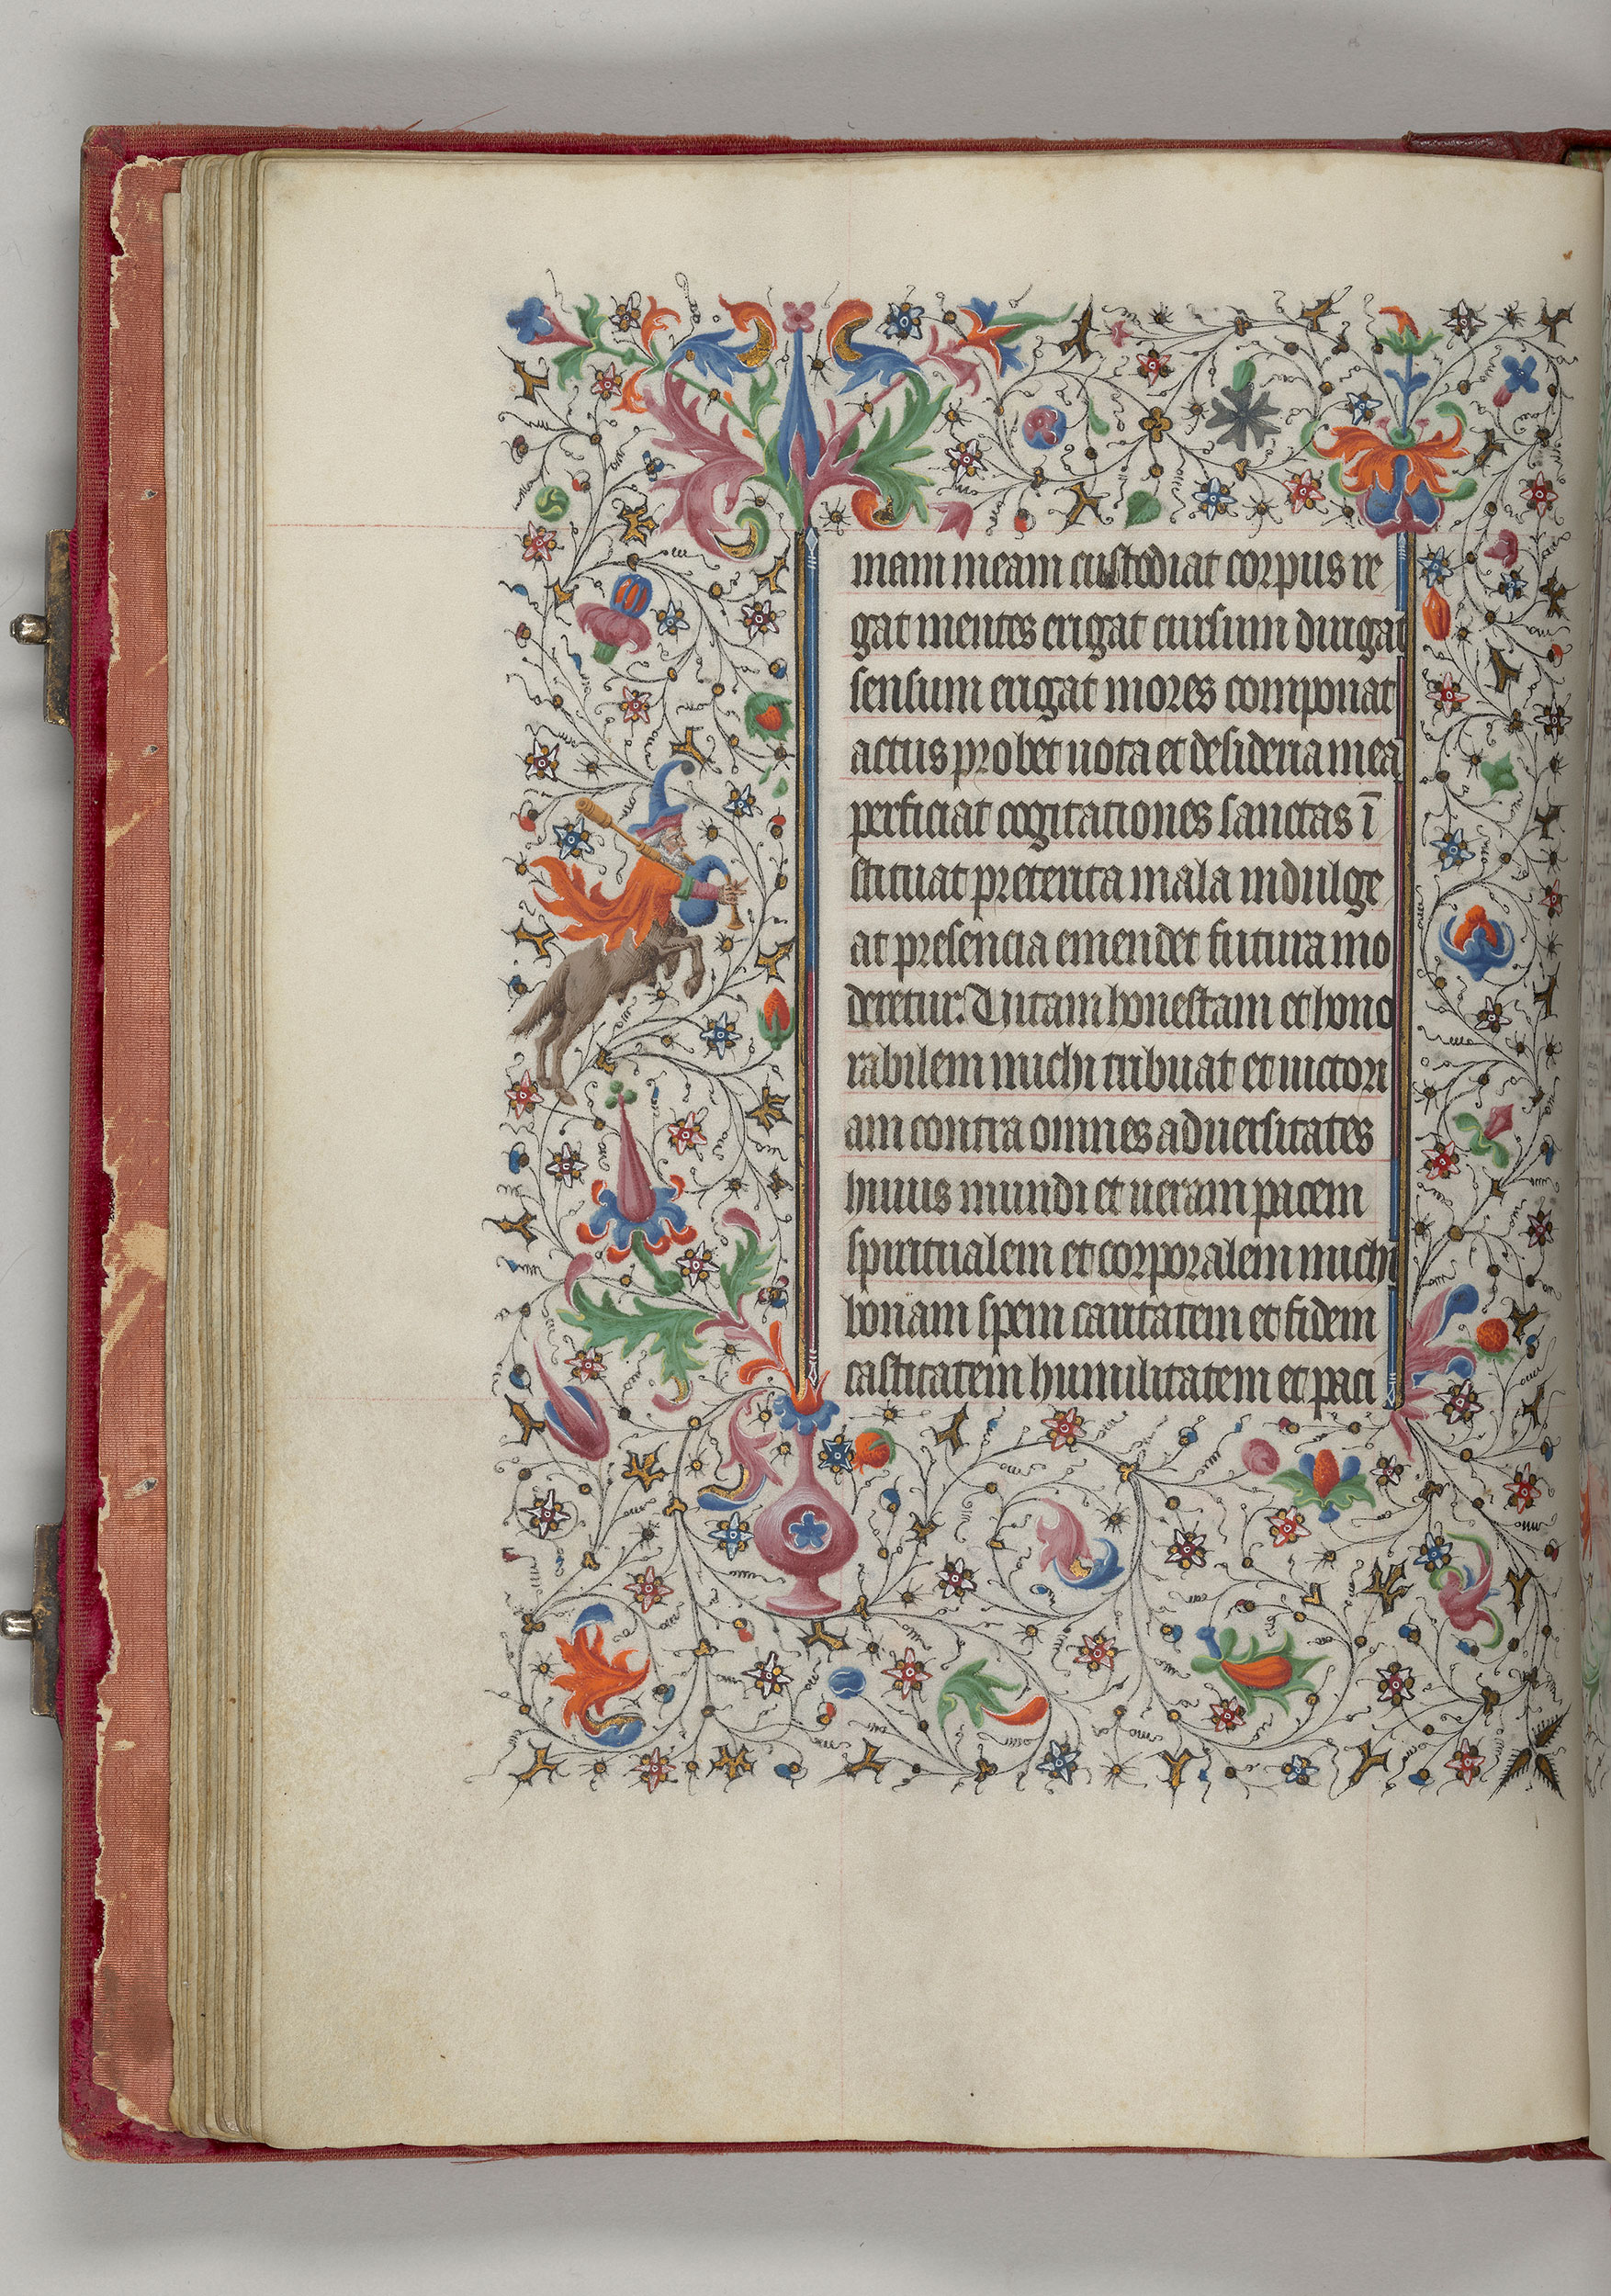 mam meam custodiat corpus re
gat mentes erigat cursum dirigat
sensum erigat mores componat
actus probet uota et desideria mea
perficiat cogitationes sanctas ī
stituat preterita mala indulge
at presencia emendet futura mo
deretur. Uitam honestam et hono
rabilem michi tribuat et uictori
am contra omnes aduersitates
huius mundi et ueram pacem
spiritualem et corporalem michi
bonam spem caritatem et fidem
castitatem humilitatem et paci